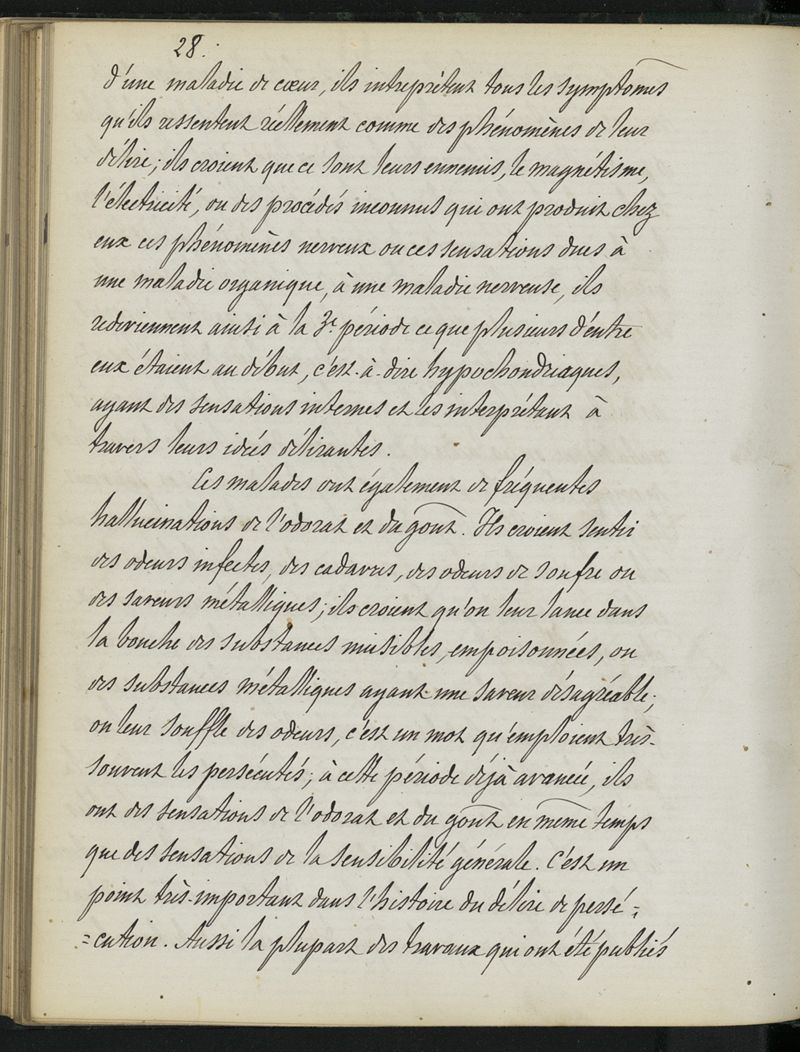 28.
d'une maladie de cœur, ils intreprètent tous les symptômes
qu'ils ressentent réellement comme des phénomènes de leur
délire; ils croient que ce sont leurs ennemis, le magnétisme,
l'électricité, ou des procédés inconnus qui ont produit chez
eux ces phénomènes nerveux ou ces sensations dues à
une maladie organique, à une maladie nerveuse, ils
redeviennent ainsi à la 3e période ce que plusieurs d'entre
eux étaient au début, c'est-à-dire hypochondriaques,
ayant des sensations internes et les interprétant à
travers leurs idées délirantes.
Ces malades ont également de fréquentes
hallucinations de l'odorat et du goût. Ils croient sentir
des odeurs infectes, des cadavres, des odeurs de soufre ou
des saveurs métalliques; ils croient qu'on leur lance dans
la bouche des substances nuisibles, empoisonnées, ou
des substances métalliques ayant une saveur désagréable;
on leur souffle des odeurs, c'est un mot qu'emploient très-
souvent les persécutés; à cette période déjà avancée, ils
ont des sensations de l'odorat et du goût en même temps
que des sensations de la sensibilité générale. C'est un
point très-important dans l'histoire du délire de persé-=
=cution. Aussi la plupart des travaux qui ont été publiés